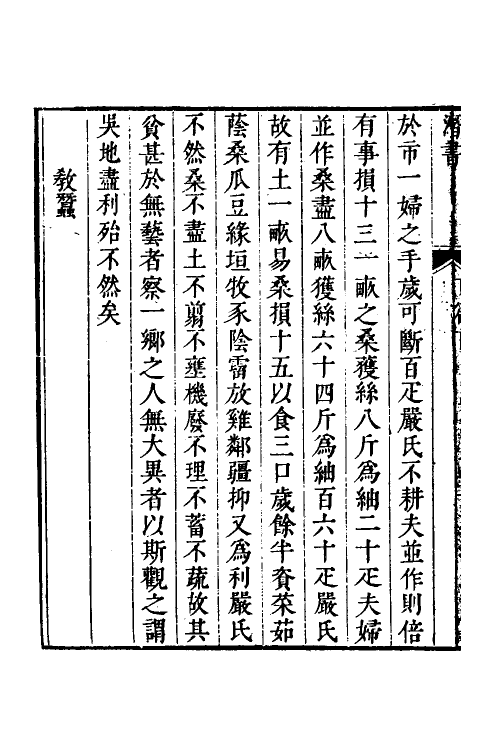 潛書
於市一婦之手歲可斷百疋嚴氏不耕夫並作則倍
有事損十三一畝之桑獲絲八斤爲紬二十疋夫婦
並作桑盡八畝獲絲六十四斤爲紬百六十疋嚴氏
故有土一畝易桑損十五以食三口歲餘半賫菜茹
蔭桑瓜豆緣垣牧豕陰霤放雞鄰疆抑又爲利嚴氏
不然桑不盡土不翦不壅機廢不理不蓄不蔬故其
貧甚於無藝者察一鄉之人無大異者以斯觀之謂
吳地盡利殆不然矣
教蠶